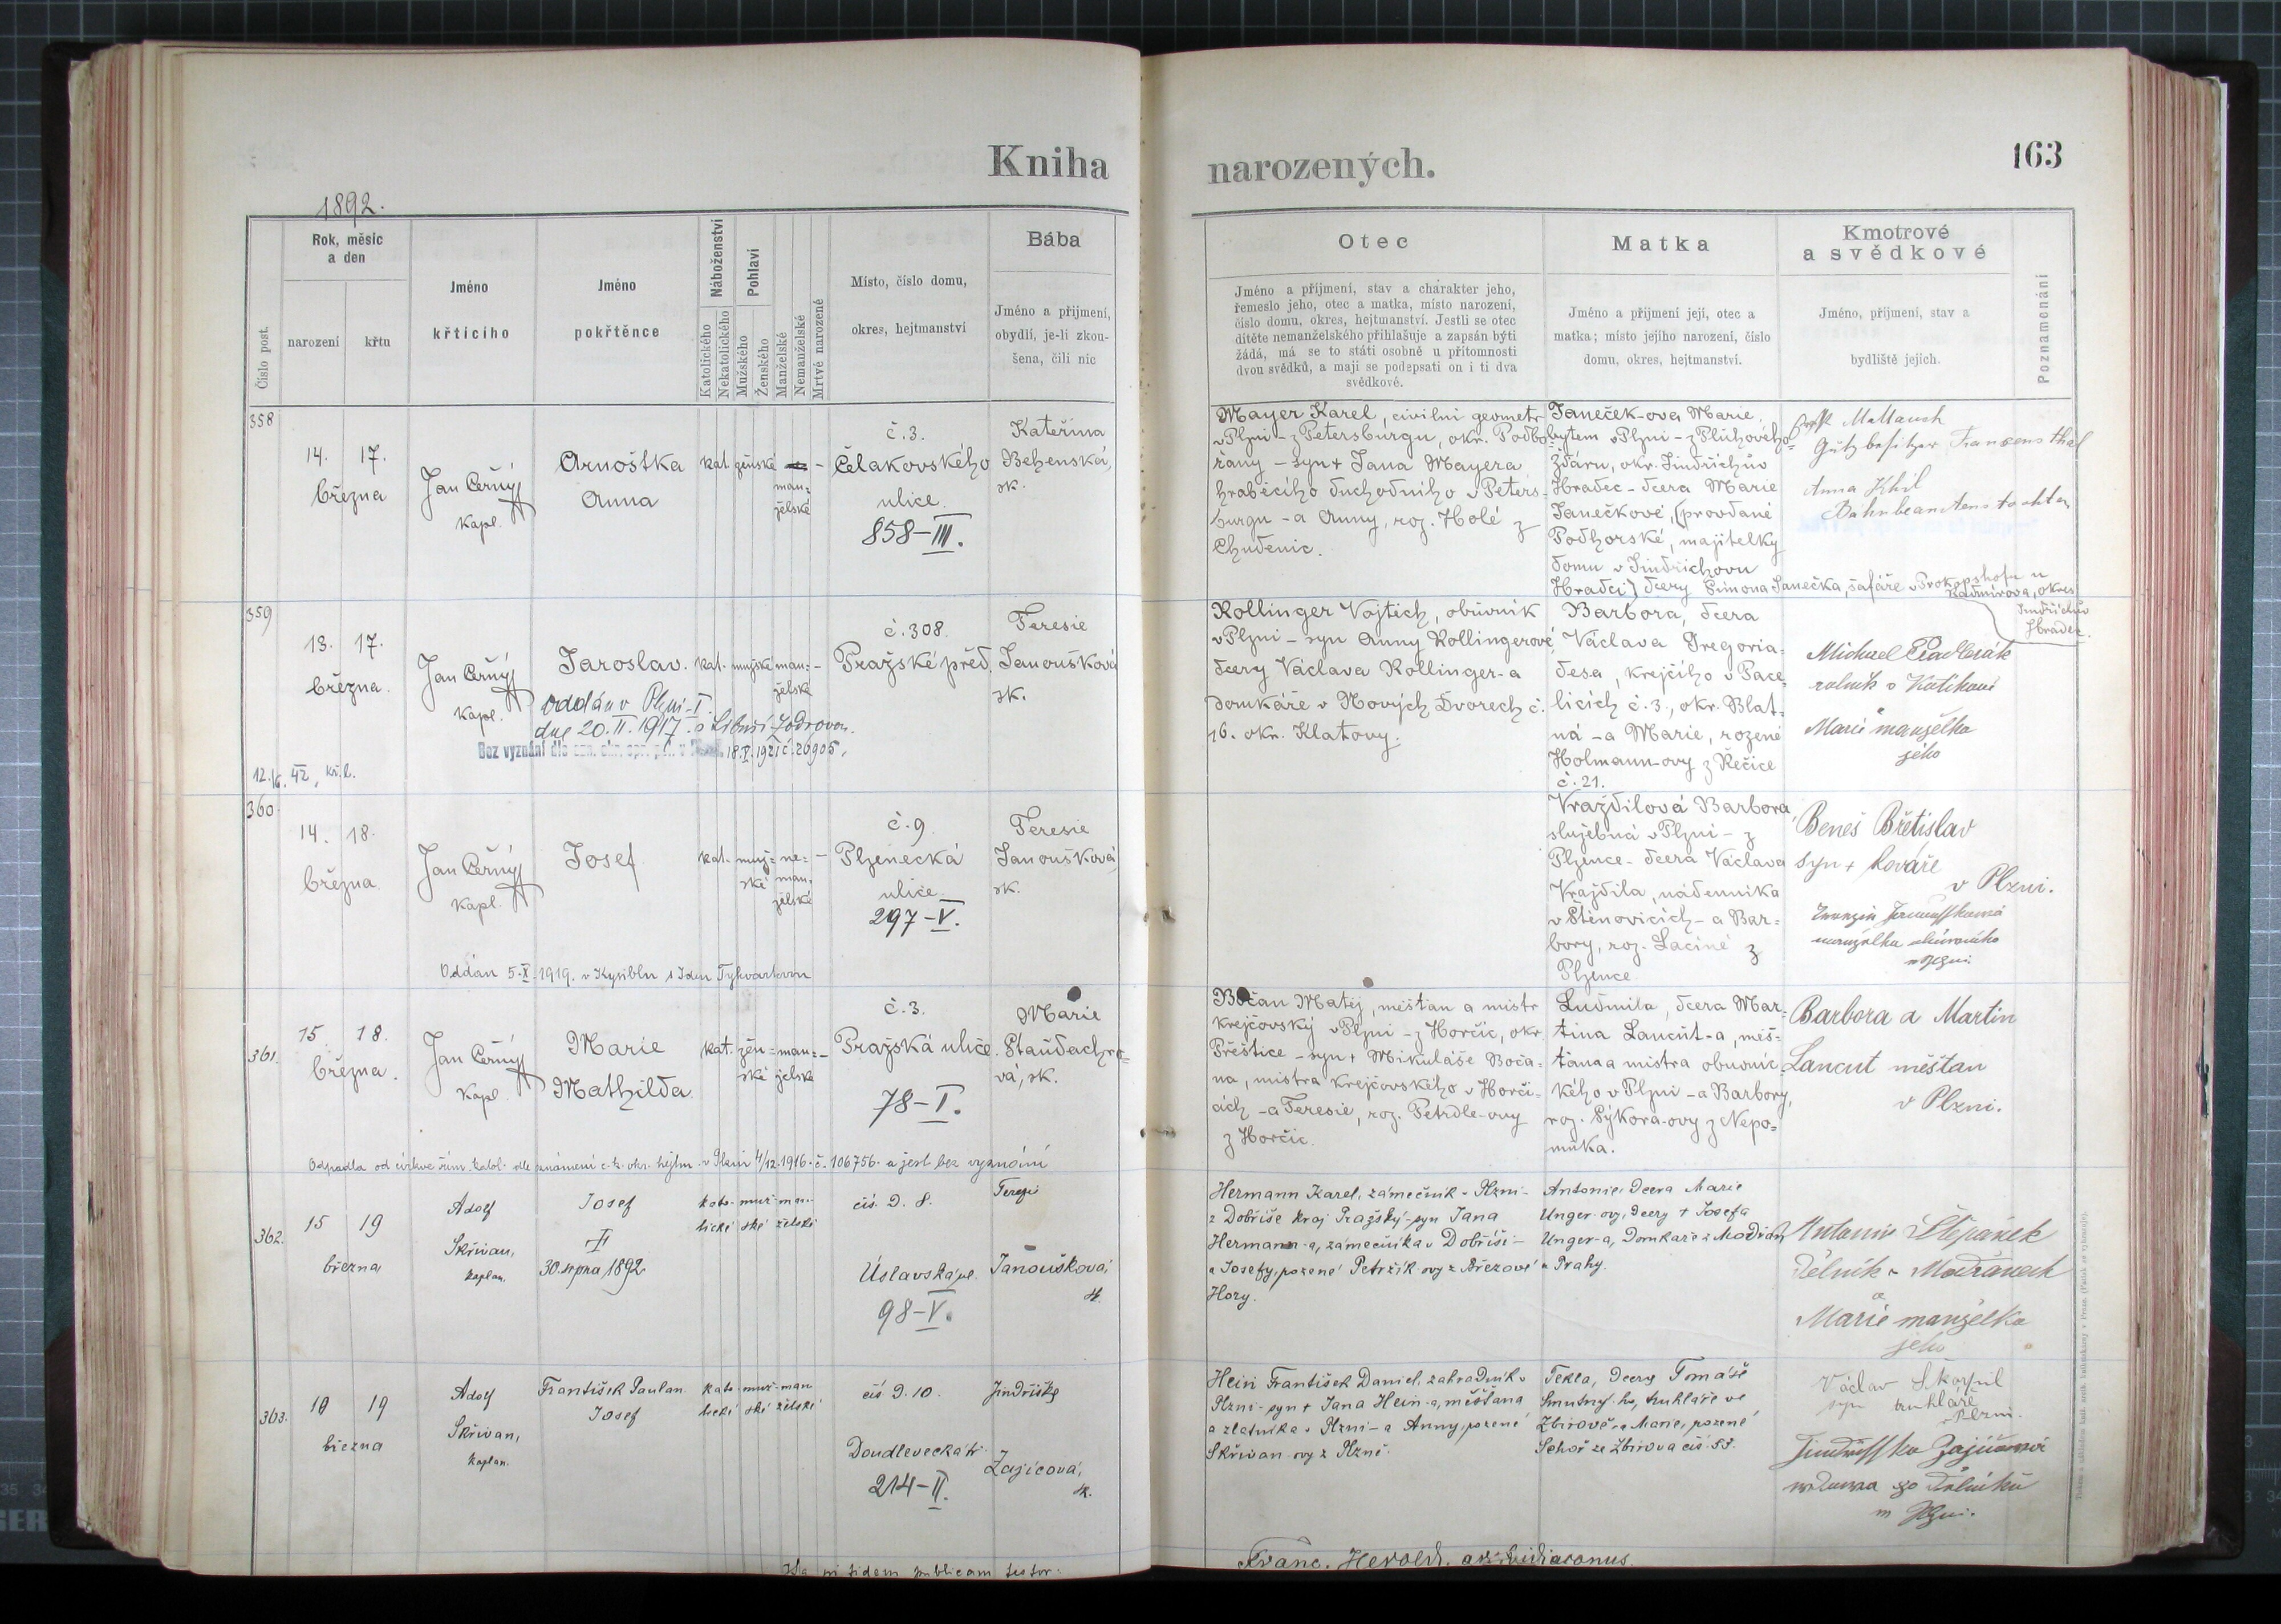 Kniha
narozených.
163
1892.
Číslo post.
Rok, měsíc
a den
narození
křtu
Jméno
křtícího
Jméno
pokřtěnce
Náboženství
Katolického
Nekatolického
Pohlaví
Mužského
Ženského
Manželské
Nemanželské
Mrtvě narozené
Místo, číslo domu,
okres, hejtmanství
Bába
Jméno a příjmení,
obydlí, je-li zkou-
šena, čili nic
Otec
Jméno a příjmení, stav a charakter jeho,
řemeslo jeho, otec a matka, místo narození,
číslo domu, okres, hejtmanství. Jestli se otec
dítěte nemanželského přihlašuje a zapsán býti
žádá, má se to státi osobně u přítomnosti
dvou svědků, a mají se podepsati on i ti dva
svědkové.
Matka
Jméno a příjmení její, otec a
matka; místo jejího narození, číslo
domu, okres, hejtmanství.
Kmotrové
a svědkové
Jméno, příjmení, stav a
bydliště jejich.
Poznamenání
358
14. 17.
března
Jan Černý
Kapl.
Arnoštka
Anna
kat. ženské
man=
želské
č. 3.
Čelakovského
ulice.
858-III.
Kateřina
Behenská,
sk.
Mayer Karel, civilní geometr
v Plzni - z Petersburgu, okr. Podbo
řany - syn + Jana Mayera
hraběcího důchodního v Peters-
burgu - a Anny, roz. Holé z
Chudenic.
Janeček-ova Marie,
bytem v Plzni - z Plúhového
Žďáru, okr. Jindřichův
Hradec - dcera Marie
Janečkové, (provdané
Podhorské, majitelky
domu v Jindřichovu
Hradci) dcery Šimona Janečka, šafáře v Prokopshofu u
Kašmírova, okres
Jindřichův
Hradec.
Gutsbesitzer Franzensthal
Anna Khil
Bahnbeamtenstochter
359
13. 17.
března.
Jan Černý
Kapl.
Jaroslav.
kat. mužské man=
želské
oddán v Plzni-I.
dne 20.II.1917. s Libuší
Bez vyznání dle
18.X.1921 č. 26905,
12./6. 42, kř. l.
č. 308.
Pražské před.
Teresie
Janoušková
sk.
Rollinger Vojtěch, obuvník
v Plzni - syn Anny Rollingerové,
dcery Václava Rollinger-a
domkáře v Nových Dvorech č.
16. okr. Klatovy.
Barbora, dcera
Václava Gregoria-
desa, krejčího v Pace-
licích č. 3., okr. Blat-
ná - a Marie, rozené
Holmann-ovy z Řečice
č. 21.
Michael
rolník v
a
Marie manželka
jeho
360
14. 18.
března.
Jan Černý
Kapl.
Josef
kat. muž= ne=
ské man=
želské
č. 9.
Plzenecká
ulice.
297-V.
Teresie
Janoušková,
sk.
Oddán 5.X.1919. v Kysiblu s Idou
Vraždilová Barbora,
služebná v Plzni - z
Plzence - dcera Václava
Vraždila, nádenníka
v Štěnovicích - a Bar=
bory, roz. Laciné z
Plzence
Beneš Břetislav
syn + kováře
v Plzni.
manželka
v Plzni.
361.
15. 18.
března.
Jan Černý
Kapl.
Marie
Mathilda.
kat. žen= man=
ské želské
č. 3.
Pražská ulice.
78-I.
Marie
Štaudachro=
vá, sk.
Bočan Matěj, měšťan a mistr
krejčovský v Plzni - z Horčic, okr.
Přeštice - syn + Mikuláše Boča-
na, mistra krejčovského v Horči=
cích - a Teresie, roz. Petrdle-ovy
z Horčic.
Ludmila, dcera Mar=
tina Lancut-a, měš-
ťana a mistra obuvnic-
kého v Plzni - a Barbory,
roz. Sýkora-ovy z Nepo=
muka.
Barbora a Martin
Lancut měšťan
v Plzni.
Odpadla od církve řím. katol. dle oznámení c.k. okr. hejtm. v Plzni 4/12.1916. č. 106756. a jest bez vyznání
362.
15 19
března
Adolf
Skřivan,
kaplan.
Josef
†
30. srpna 1892.
kato- muž- man-
lické ské želské
čís. D. 8.
Úslavská ul.
98-V.
Terezie
Janoušková,
sk.
Hermann Karel, zámečník v Plzni -
z Dobříše kraj Pražský - syn Jana
Hermann-a, zámečníka v Dobříši -
a Josefy, rozené Petržík-ovy z Březové
Hory.
Antonie, dcera Marie
Unger-ovy, dcery + Josefa
Unger-a, domkaře z Modřan
u Prahy.
Antonín Štěpánek
Dělník v Modřanech
a
Marie manželka
jeho
363.
18 19
března
Adolf
Skřivan,
kaplan.
František Paulan
Josef
kato- muž- man-
lické ské želské
čís. D. 10.
Doudlevecká tř.
214-II.
Jindřiška
Zajícová,
sk.
Hein František Daniel, zahradník v
Plzni - syn + Jana Hein-a, měšťana
a zlatníka v Plzni - a Anny, rozené
Skřivan-ovy z Plzně.
Tekla, dcera Tomáše
Smutný-ho, truhláře ve
Zbirově - a Marie, rozené
Schoř ze Zbirova čís. 55.
Václav Skoypil
syn truhláře
v Plzni.
Jindřiška Zajícová
wdowa po Dělníku
w Plzni.
in fidem publicam testor:
Franc. Herold. archidiaconus.